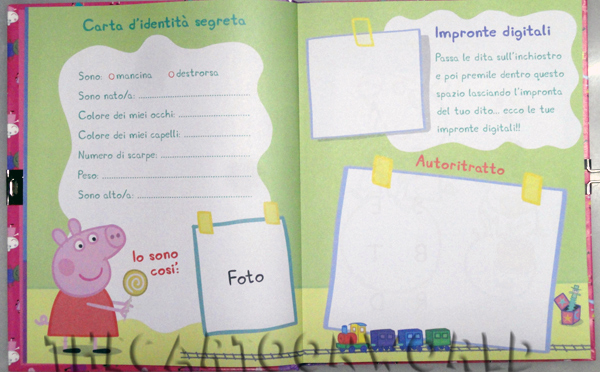 Carta d'identità segreta
Sono: mancina destrorsa
Sono nato/a:
Colore dei miei occhi:
Colore dei miei capelli:
Numero di scarpe:
Peso:
Sono alto/a:
Io sono
così:
Foto
Impronte digitali
Passa le dita sull'inchiostro
e poi premile dentro questo
spazio lasciando l'impronta
del tuo dito... ecco le tue
impronte digitali!!
Autoritratto
THECARTOONWORLD